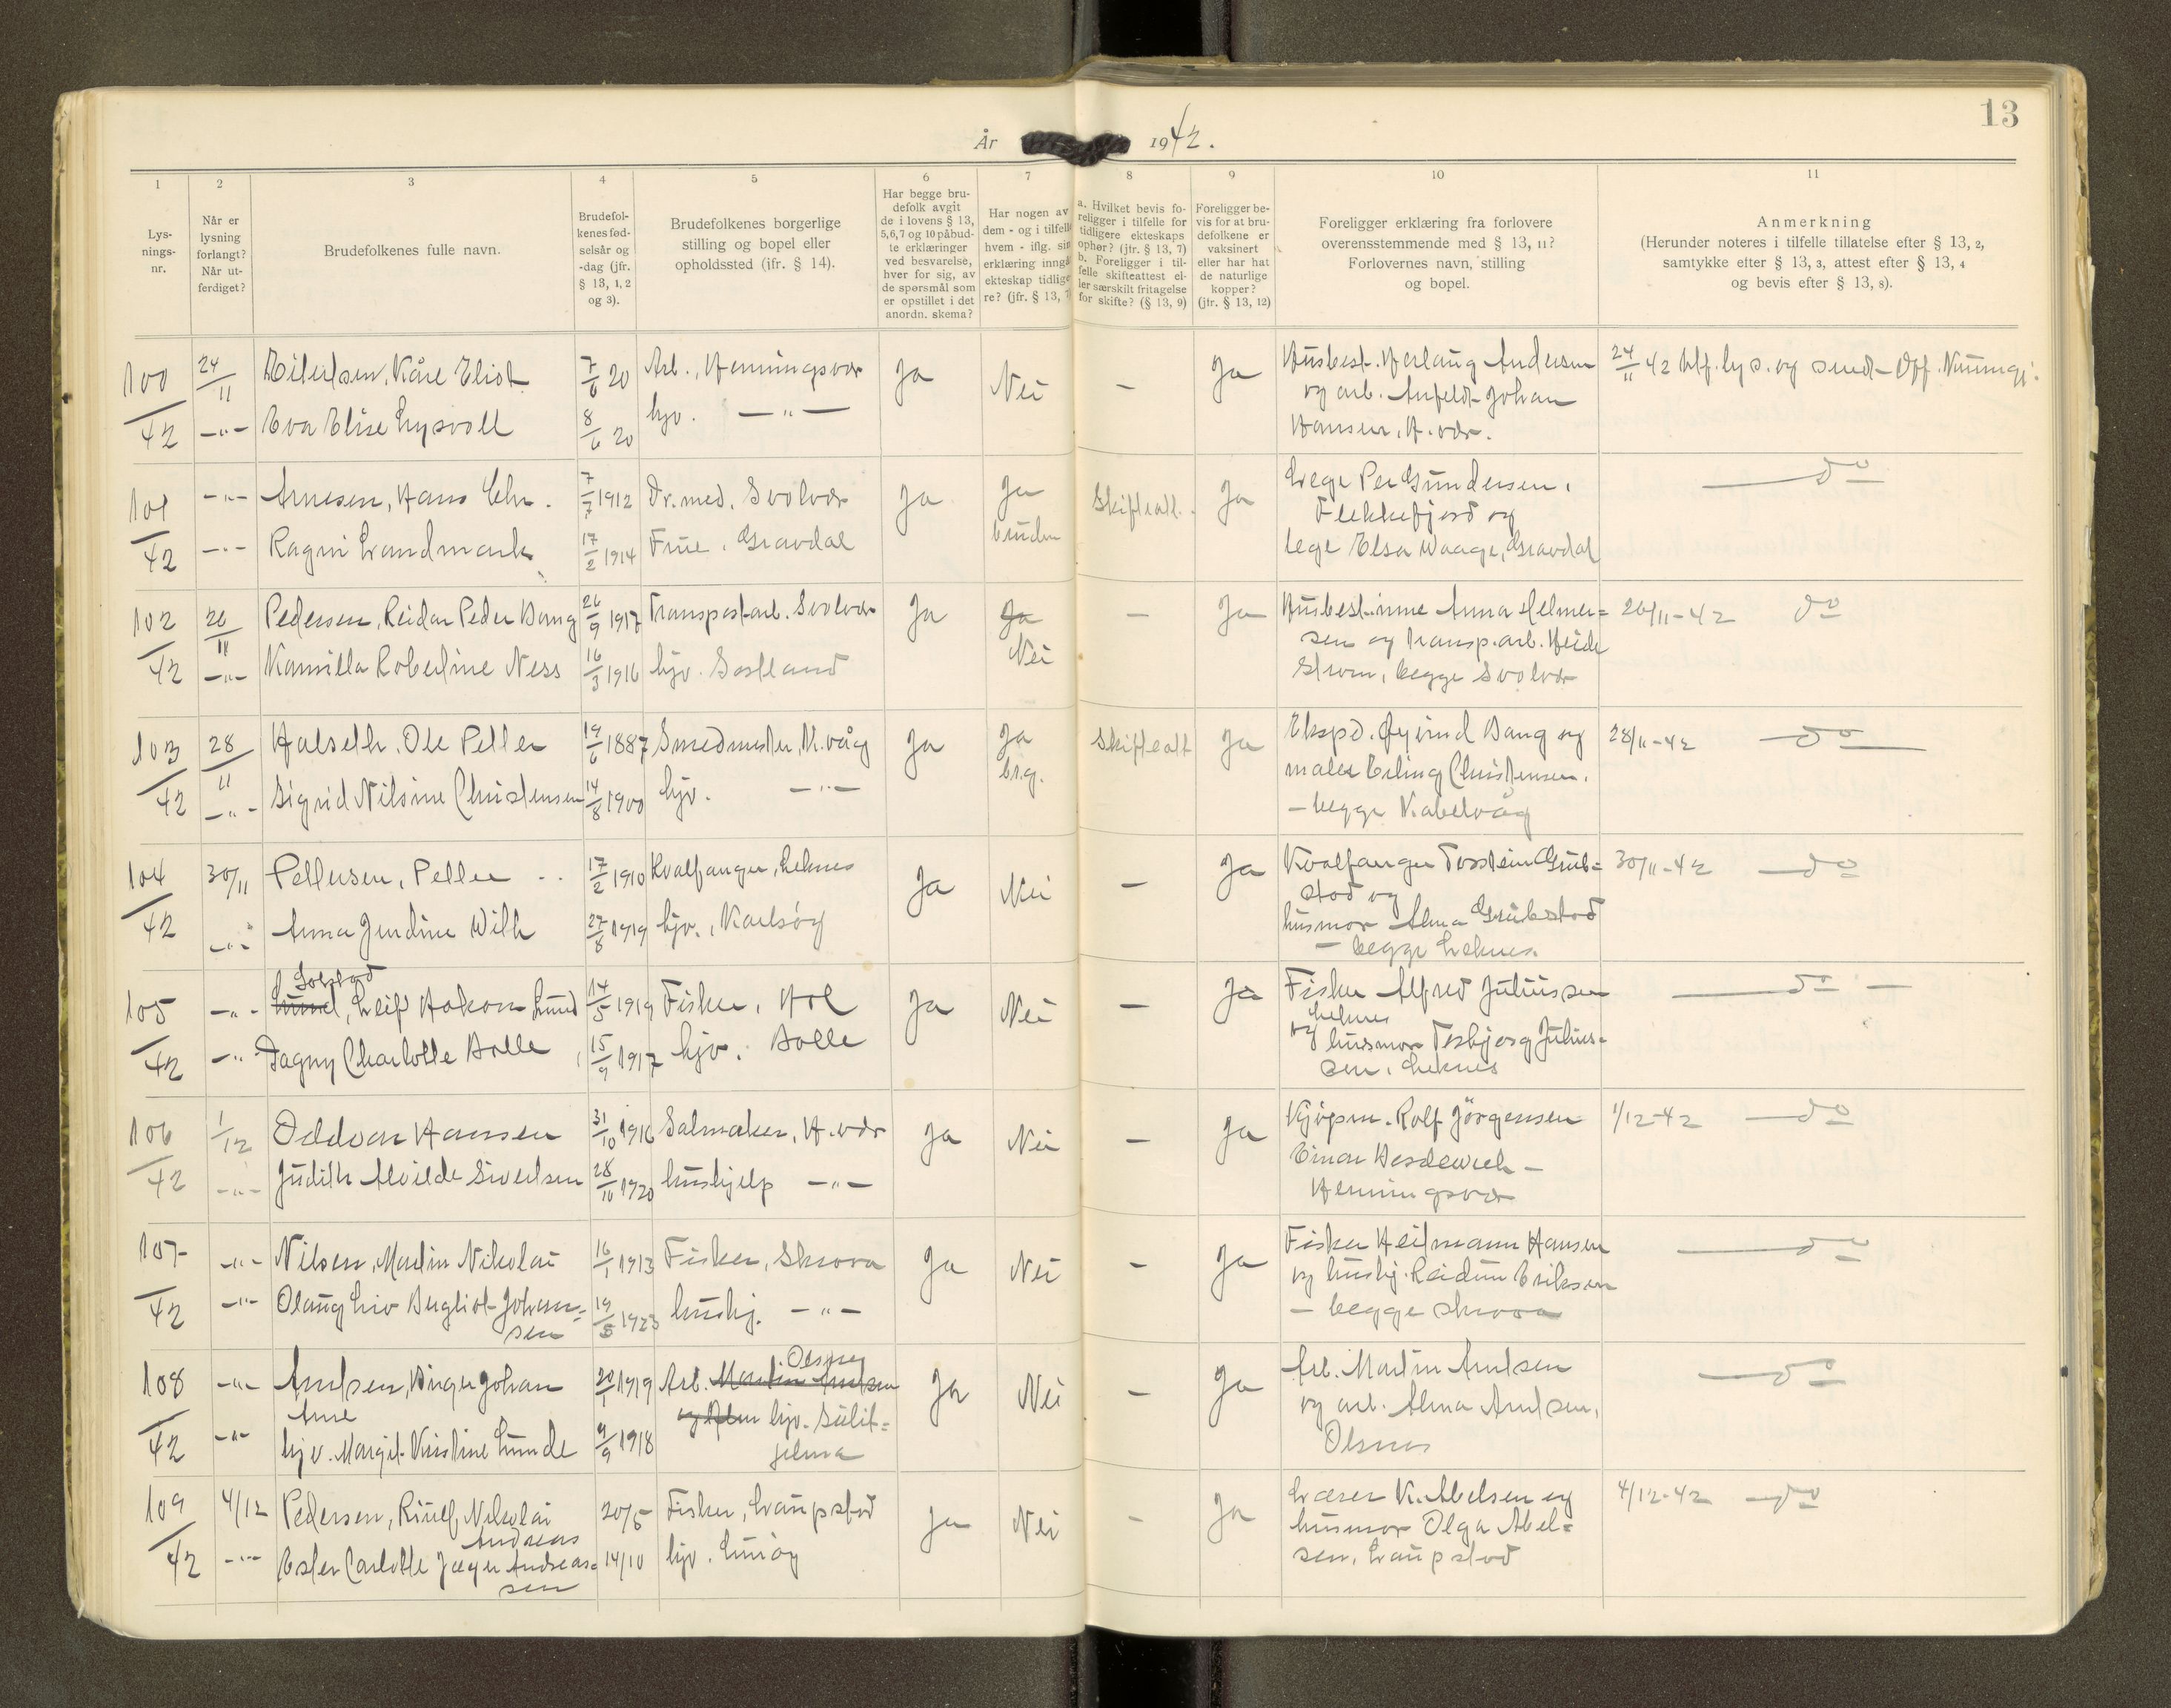 13
År 1942.
1 2 3 4 5 6 7 8 9 10 11
Lys-
nings-
nr.
Når er
lysning
forlangt?
Når ut-
ferdiget?
Brudefolkenes fulle navn.
Brudefol-
kenes fød-
selsår og
-dag (jfr.
§ 13, 1, 2
og 3).
Brudefolkenes borgerlige
stilling og bopel eller
opholdssted (ifr. § 14).
Har begge bru-
defolk avgit
de i lovens § 13,
5, 6, 7 og 10 påbud-
te erklæringer
ved besvarelse,
hver for sig, av
de spørsmål som
er opstillet i det
anordn. skema?
Har nogen av
dem - og i tilfelle
hvem - iflg. sin
erklæring inngå
ekteskap tidlige
re? (jfr. § 13, 7)
a. Hvilket bevis fo-
religger i tilfelle for
tidligere ekteskaps
ophør? (jfr. § 13, 7)
b. Foreligger i til-
felle skifteattest el-
ler særskilt fritagelse
for skifte? (§ 13, 9)
Foreligger be-
vis for at bru-
defolkene er
vaksinert
eller har hat
de naturlige
kopper?
(jfr. § 13, 12)
Foreligger erklæring fra forlovere
overensstemmende med § 13, 11?
Forlovernes navn, stilling
og bopel.
Anmerkning
(Herunder noteres i tilfelle tillatelse efter § 13, 2,
samtykke efter § 13, 3, attest efter § 13, 4
og bevis efter § 13, 8).
100/42 24/11 Eilertsen, Kåre Eliot 7/6 20 Arb., Henningsvær Ja Nei — Ja Husbest. Herlaug Andersen 24/11 42 utf. lys. og send
—"— Eva Elise Lysvoll 8/6 20 hjv. —"— og arb. Anfeldt Johan
Hansen, H.vær.
101/42 —"— Arnesen, Hans Chr. 7/7 1912 Dr. med. Svolvær Ja Ja Skifteatt. Ja Lege Per Gundersen, —do
—"— Ragni Landmark 17/2 1914 Frue, Gravdal bruden Flekkefjord og
lege Elsa Waage, Gravdal
102/42 26/11 Pedersen, Reidar Peder Bang 26/9 1917 Transportarb. Svolvær Ja Ja — Ja Husbest.inne Anna Helmer= 26/11-42 do
—"— Kamilla Robertine Ness 16/3 1916 hjv. Nei sen og transp.arb.
Strøm, begge Svolvær
103/42 28/11 Halseth, Ole Petter 19/6 1887 Smedmester, K.våg Ja Ja Skifteatt Ja Ekspd. Øyvind Bang og 28/11-42 —do—
—"— Sigrid Nilsine Christensen 14/8 1900 hjv. —"— brg. maler Erling Christensen.
— begge Kabelvåg
104/42 30/11 Pettersen, Petter 17/2 1910 Kvalfanger, Leknes Ja Nei — Ja Kvalfanger Torstein Grub= 30/11-42 —do
—"— Anna Jendine Wilh 27/8 1919 hjv., Karlsøy stad og
husmor Alma Grubstad
— begge Leknes.
Solstad
105/42 —"— Lund, Leif Hakon Lund 14/5 1919 Fisker, Hol Ja Nei — Ja Fisker Alfred Juliussen —do—
—"— Dagny Charlotte Bolle 15/9 1917 hjv. Bolle Leknes
og husmor Torbjørg Julius=
sen, Leknes
106/42 1/12 Oddvar Hansen 31/10 1916 Salmaker, H.vær Ja Nei — Ja Kjøpm. Rolf Jørgensen 1/12-42 —do
—"— Judith Alvilde Sivertsen 28/10 1920 hushjelp —"— Einar —
Henningsvær
107/42 —"— Nilsen, Martin Nikolai 16/1 1913 Fisker, Skrova Ja Nei — Ja Fisker Heitmann Hansen —do
—"— Olaug Liv Bergliot Johan= 19/5 1923 hushj. —"— og hushj. Reidun Eriksen
sen — begge Skrova
108/42 —"— Arntsen, Birger Johan 20/1 1919 Arb. Martin Arntsen Olsnes Ja Nei — Ja Arb. Martin Arntsen —do
Arne og Alma hjv. Sulit= og arb. Alma Arntsen,
—"— hjv. Margit Kristine Lunde 9/9 1918 jelma Olsnes
109/42 4/12 Pedersen, Rinulf Nikolai 20/5 Fisker, Laupstad Ja Nei — Ja Lærer K. Abelsen og 4/12-42 —do
Andreas husmor Olga Abel=
—"— Ester Carlotte Jæger Andreas= 14/10 hjv. sen, Laupstad
sen